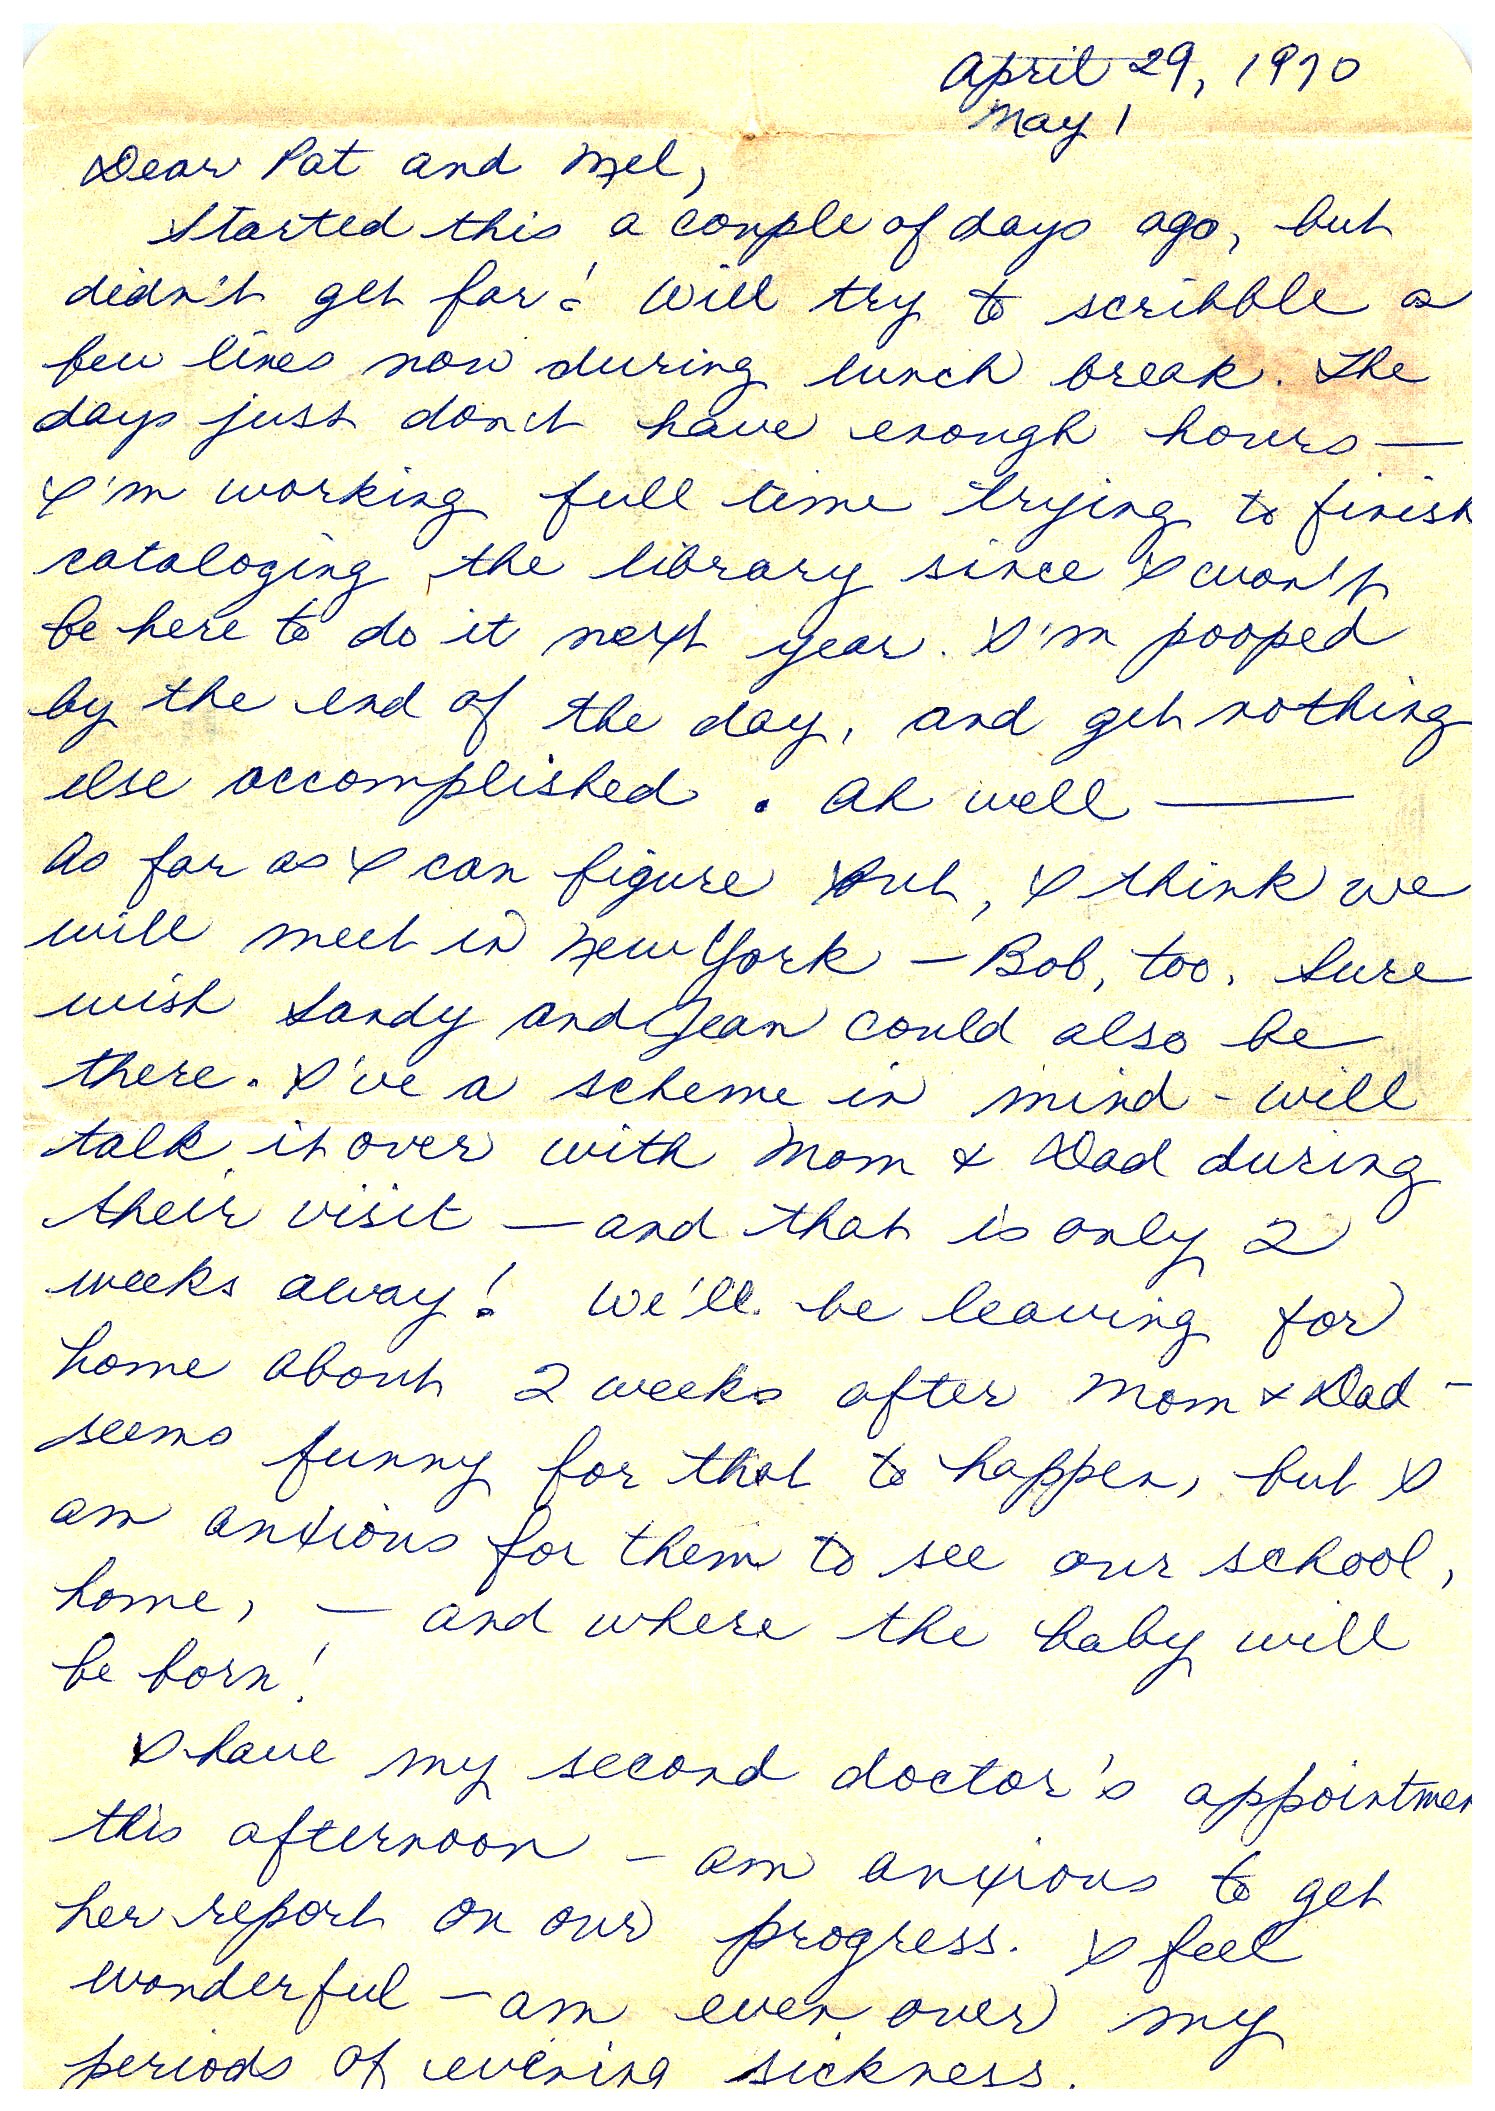 April 29, 1970
May 1
Dear Pat and Mel,
Started this a couple of days ago, but
didn't get far! Will try to scribble a
few lines now during lunch break. The
days just don't have enough hours —
I'm working full time trying to finish
cataloging the library since I won't
be here to do it next year. I'm pooped
by the end of the day, and get nothing
else accomplished. Ah well —
As far as I can figure out, I think we
will meet in New York – Bob, too. Sure
wish Sandy and Jean could also be
there. I've a scheme in mind - will
talk it over with Mom & Dad during
their visit — and that is only 2
weeks away! We'll be leaving for
home about 2 weeks after Mom & Dad –
seems funny for that to happen, but I
am anxious for them to see our school,
home, — and where the baby will
be born!
I have my second doctor's appointmen
this afternoon – am anxious to get
her report on our progress. I feel
wonderful – am even over my
periods of evening sickness.